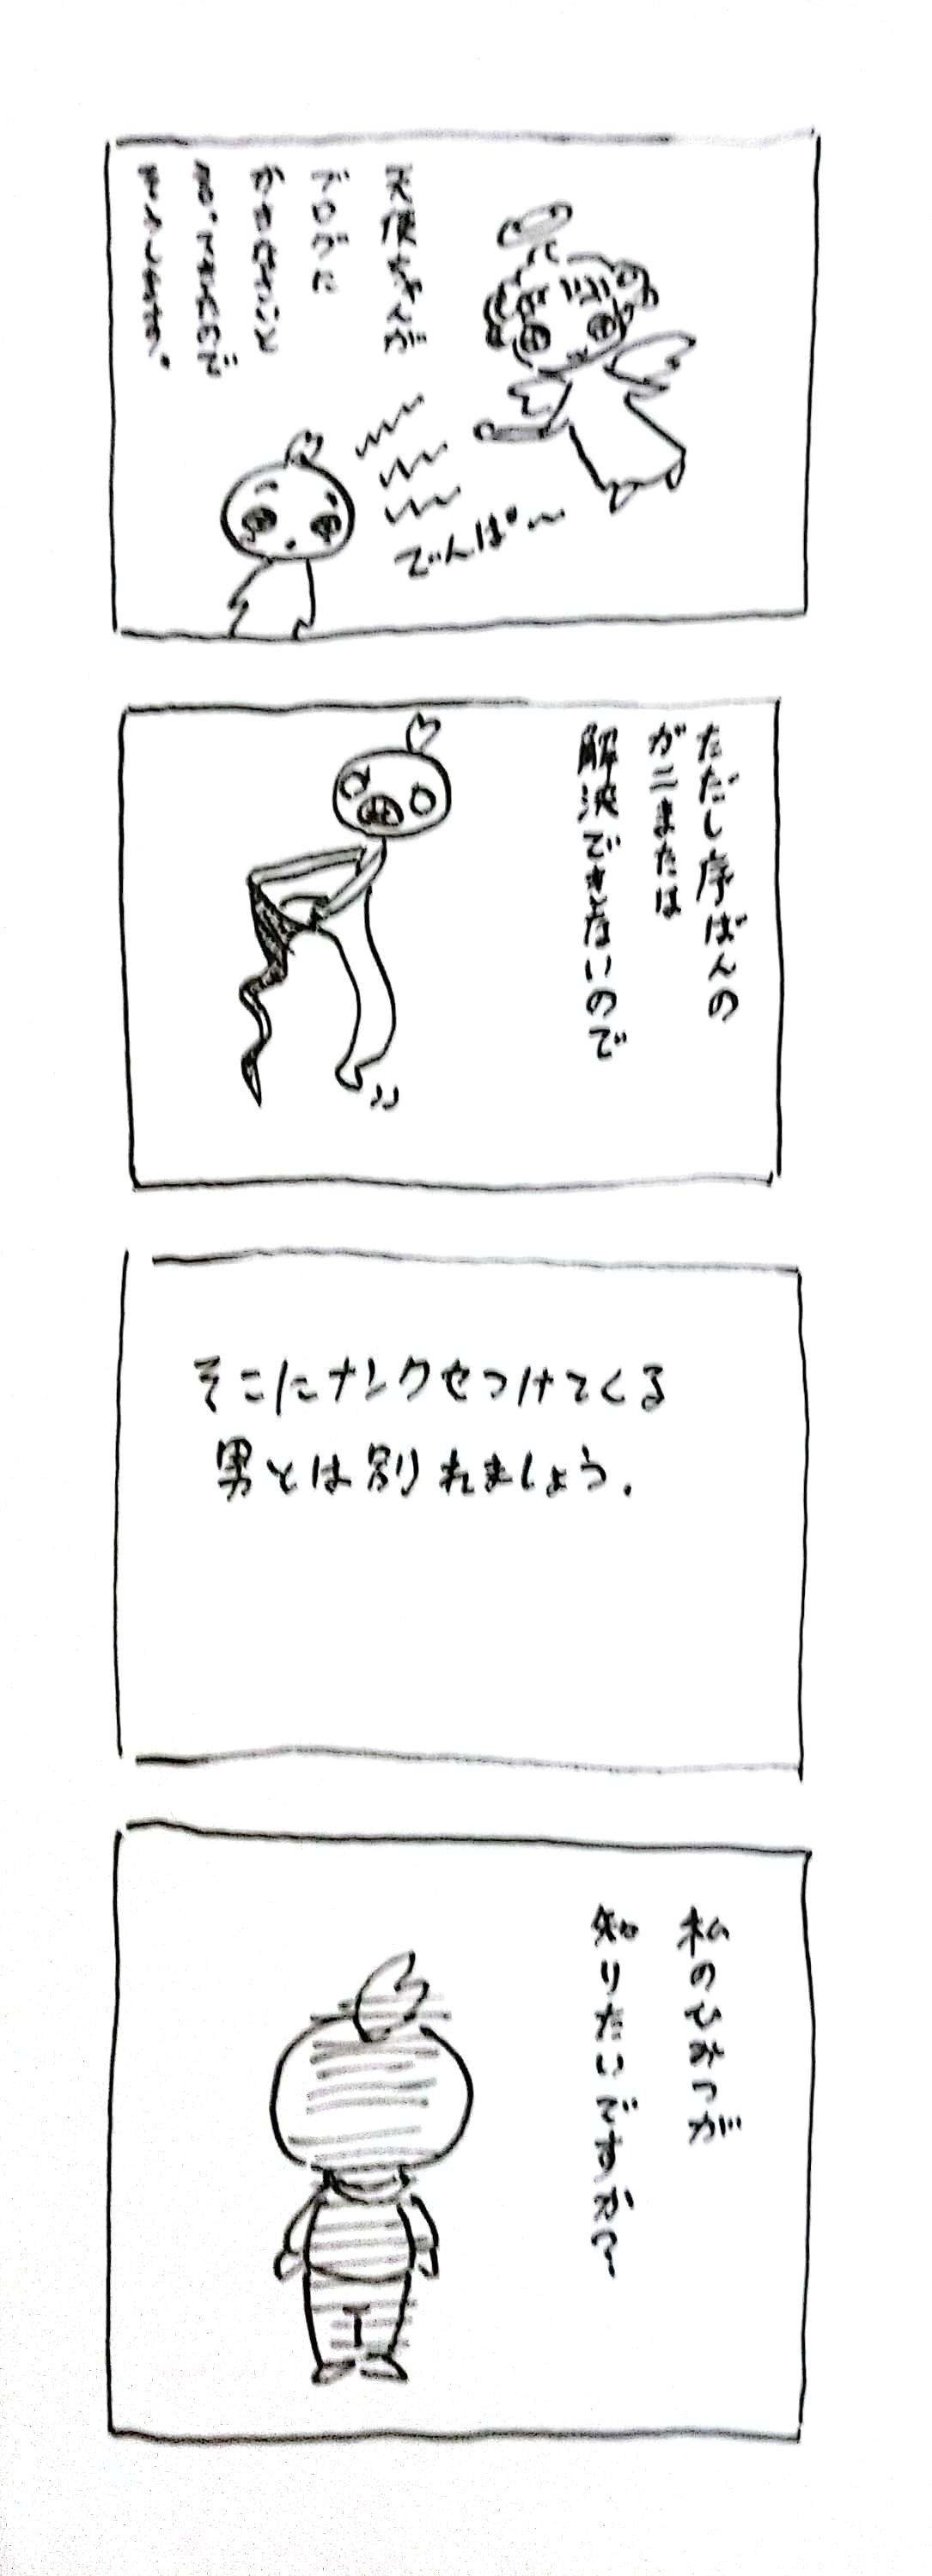 天使さんが
ブログに
かきなさいと
言ってきたので
でんぱ〜
ただし序ばんの
がにまたは
解決できないので
そこにナンクセつけてくる
男とは別れましょう.
私のひみつが
知りたいですか?